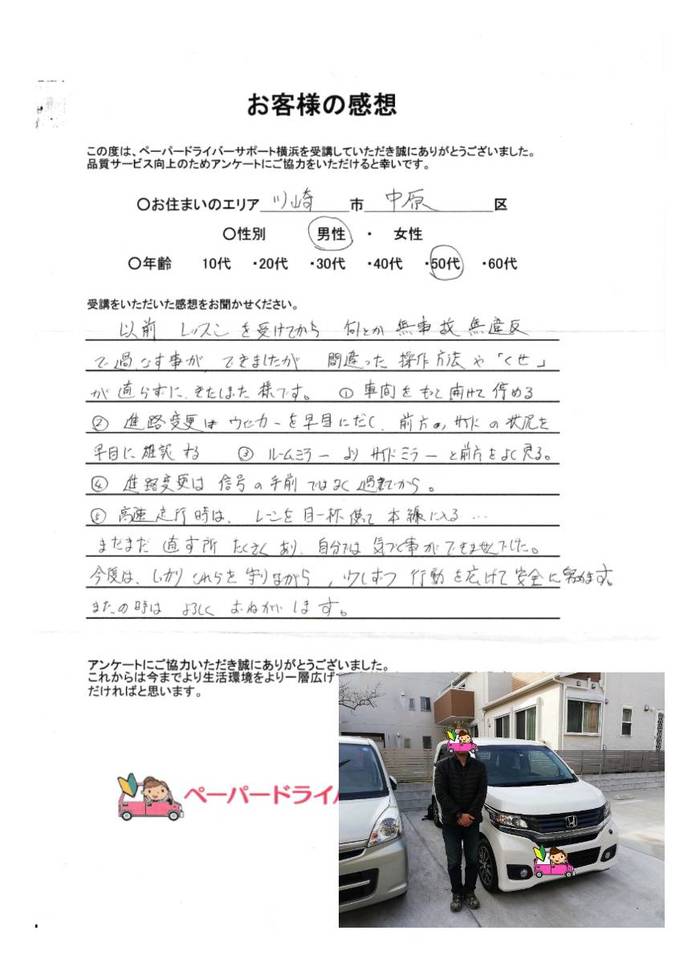 お客様の感想
この度は、ペーパードライバーサポート横浜を受講していただき誠にありがとうございました。
品質サービス向上のためアンケートにご協力をいただけると幸いです。
〇お住まいのエリア 川崎 市 中原 区
〇性別 男性 ・ 女性
〇年齢 10代 ・20代 ・30代 ・40代 ・50代 ・60代
受講をいただいた感想をお聞かせください。
以前 レッスンを受けてから 何とか 無事故 無違反
で過ごす事が できましたが 間違った 操作方法や「くせ」
が直らずに きたした 様です。 ① 車間をもっと開けて停める
② 進路変更は ウィンカーを早目にだし、前方の、サイドの状況を
早目に確認する ③ ルームミラー より サイドミラー と前方をよく見る。
④ 進路変更は 信号の手前ではなく 過ぎてから。
⑤ 高速走行時は、レーンを目一杯使って 本線に入る…
まだまだ 直す所 たくさんあり、自分では 気づく事ができませんでした。
今度は、しっかりこれらを守りながら、少しずつ 行動を広げて安全に努めます。
またの時は よろしく おねがいします。
アンケートにご協力いただき誠にありがとうございました。
これからは今までより生活環境をより一層広げ
だければと思います。
ペーパードライバ